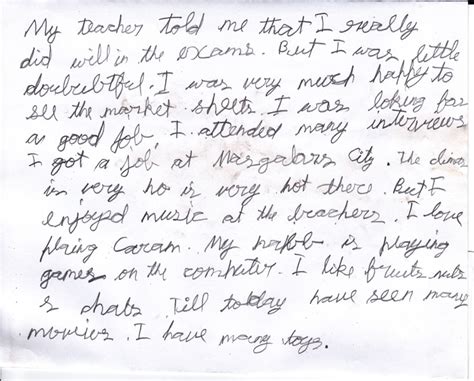 My teacher told me that I really
did will in the exams. But I was little
doubulbtful. I was very much happy to
see the market sheets. I was loking for
a good job. I attended many interviews
I got a job at City. The
is very ho is very hot there. But I
enjoyed music at the beachers. I love
Caram. My is playing
games on the computer. I like fruits nuts
s chats Till today have seen many
movies. I have many toys.